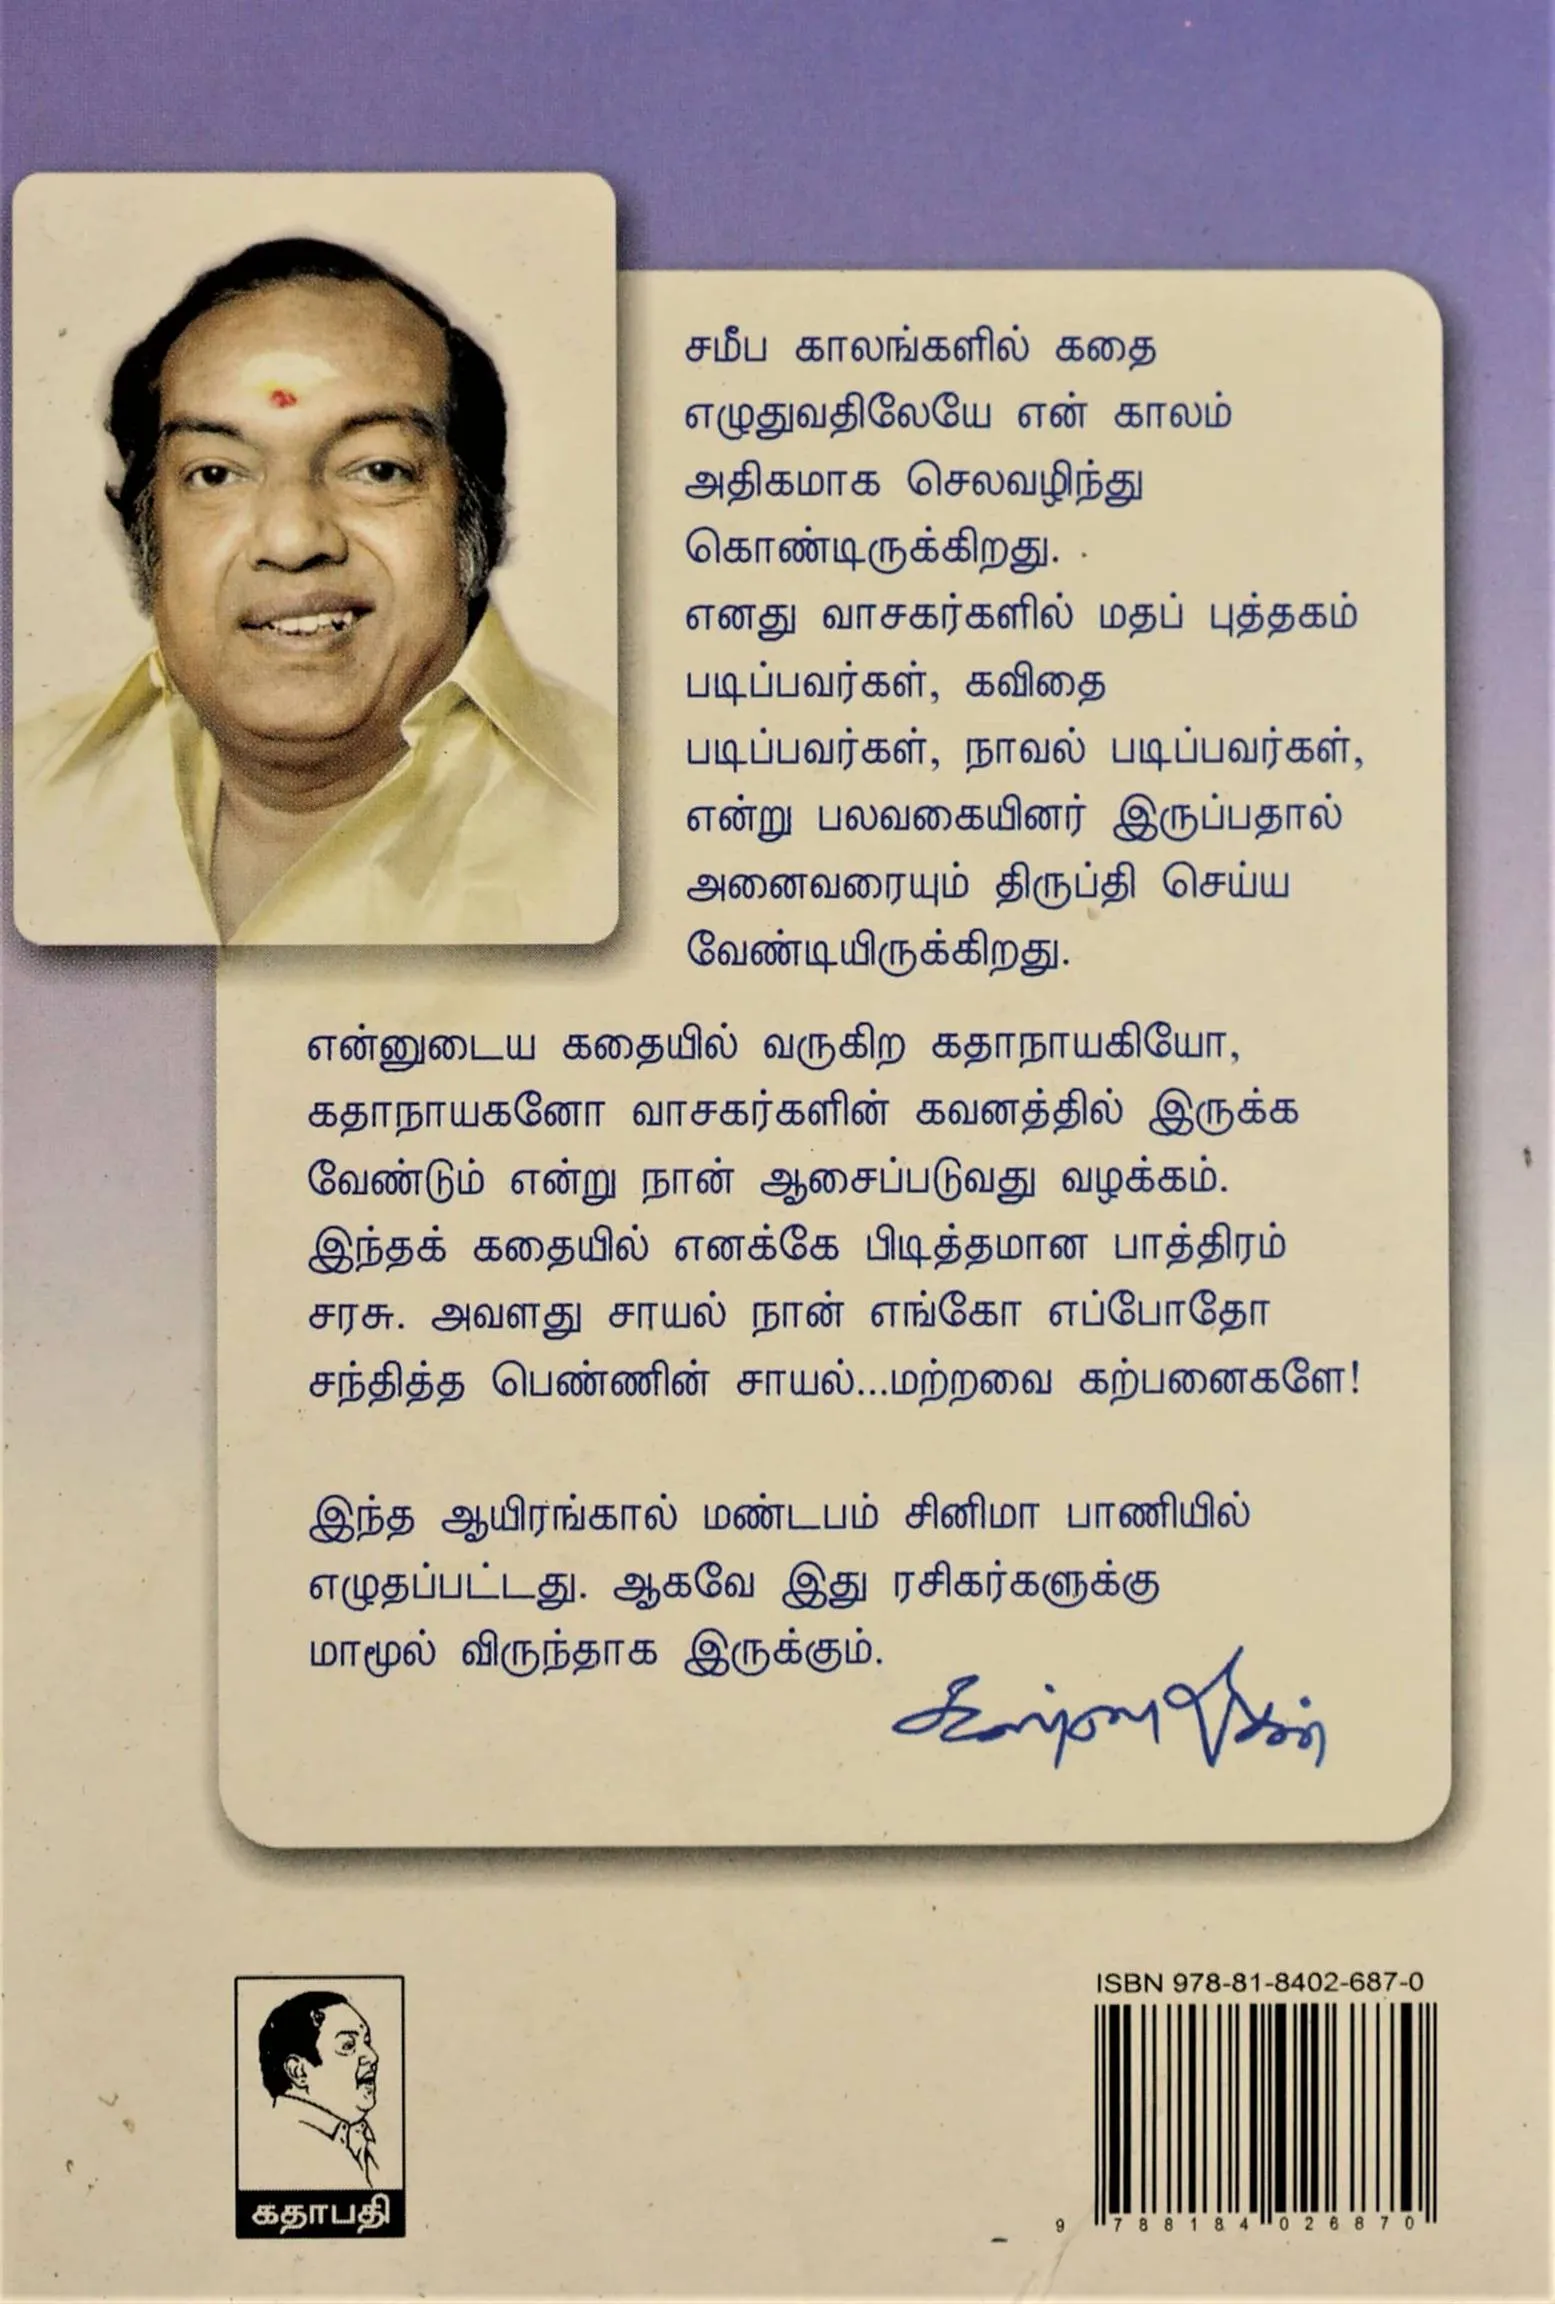 சமீப காலங்களில் கதை
எழுதுவதிலேயே என் காலம்
அதிகமாக செலவழிந்து
கொண்டிருக்கிறது.
எனது வாசகர்களில் மதப் புத்தகம்
படிப்பவர்கள், கவிதை
படிப்பவர்கள், நாவல் படிப்பவர்கள்,
என்று பலவகையினர் இருப்பதால்
அனைவரையும் திருப்தி செய்ய
வேண்டியிருக்கிறது.
என்னுடைய கதையில் வருகிற கதாநாயகியோ,
கதாநாயகனோ வாசகர்களின் கவனத்தில் இருக்க
வேண்டும் என்று நான் ஆசைப்படுவது வழக்கம்.
இந்தக் கதையில் எனக்கே பிடித்தமான பாத்திரம்
சரசு. அவளது சாயல் நான் எங்கோ எப்போதோ
சந்தித்த பெண்ணின் சாயல்...மற்றவை கற்பனைகளே!
இந்த ஆயிரங்கால் மண்டபம் சினிமா பாணியில்
எழுதப்பட்டது. ஆகவே இது ரசிகர்களுக்கு
மாமூல் விருந்தாக இருக்கும்.
கண்ணதாசன்
ISBN 978-81-8402-687-0
9 788184 026870
கதாபதி